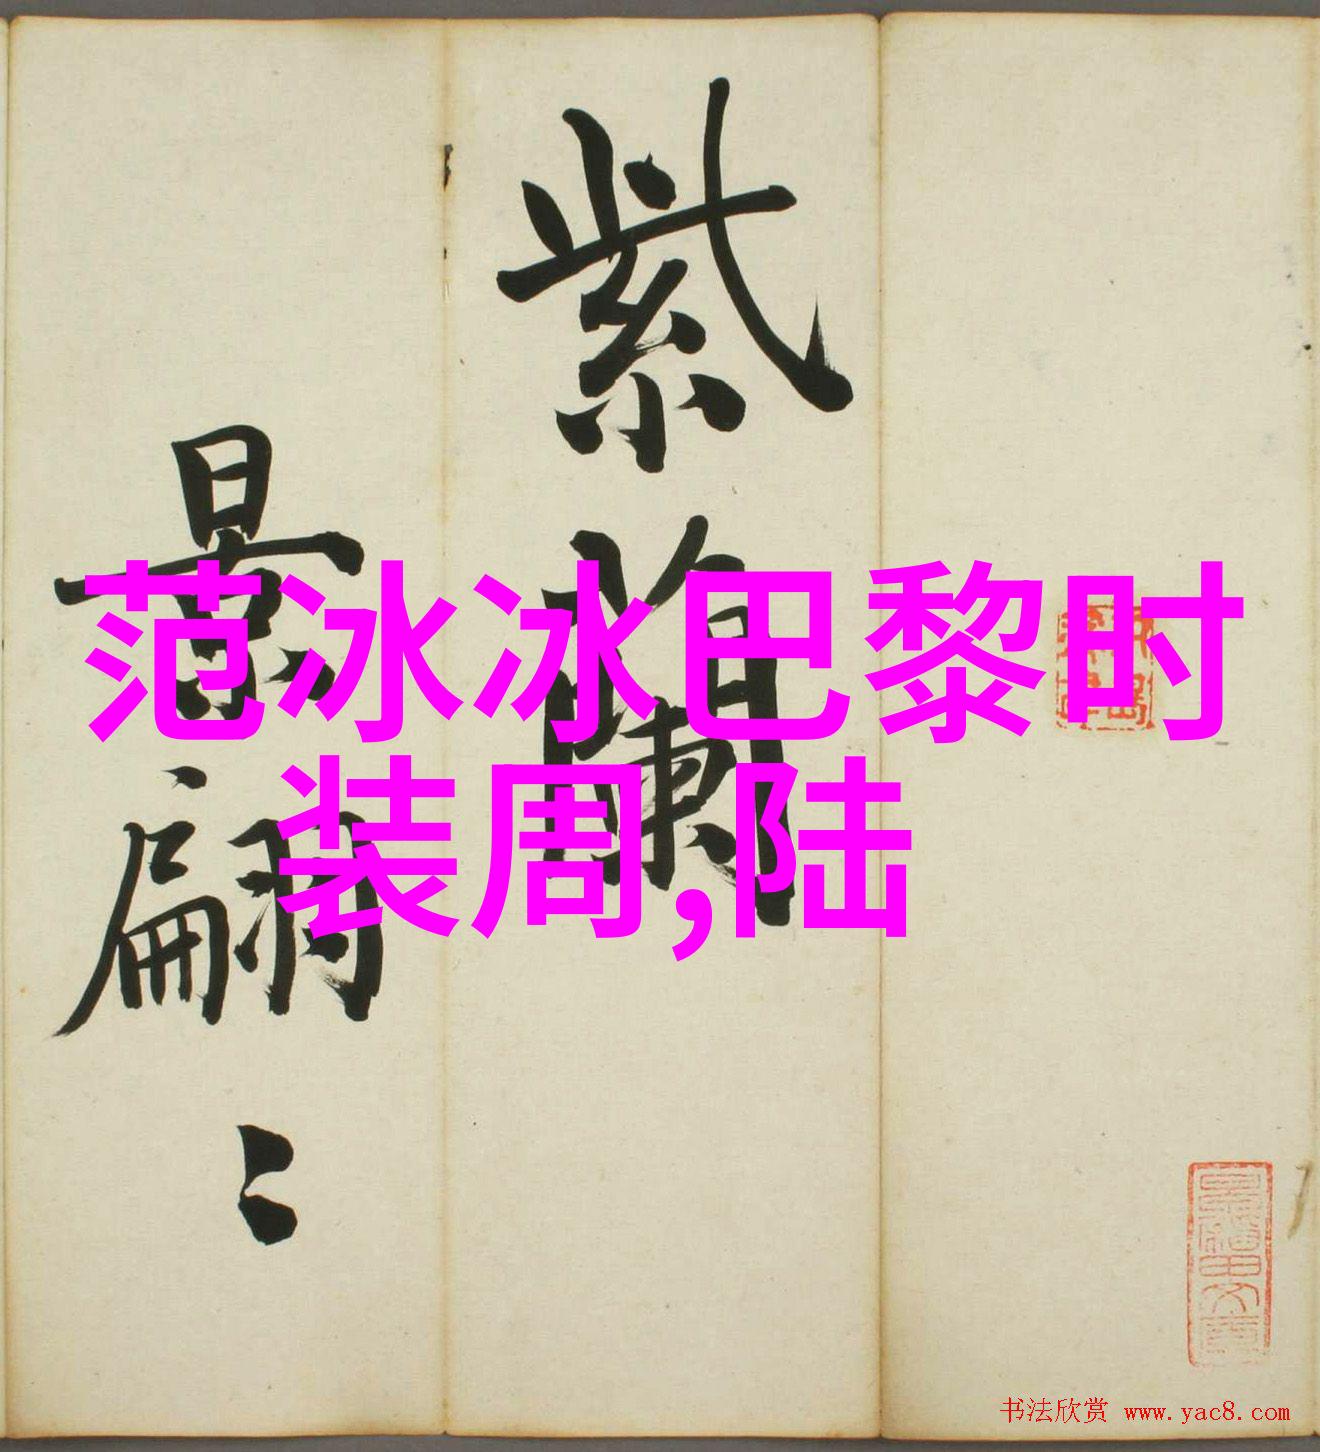 紫蘭
景翩〻
范冰冰巴黎时
装周,陆
书法欣赏 www.yac8.com